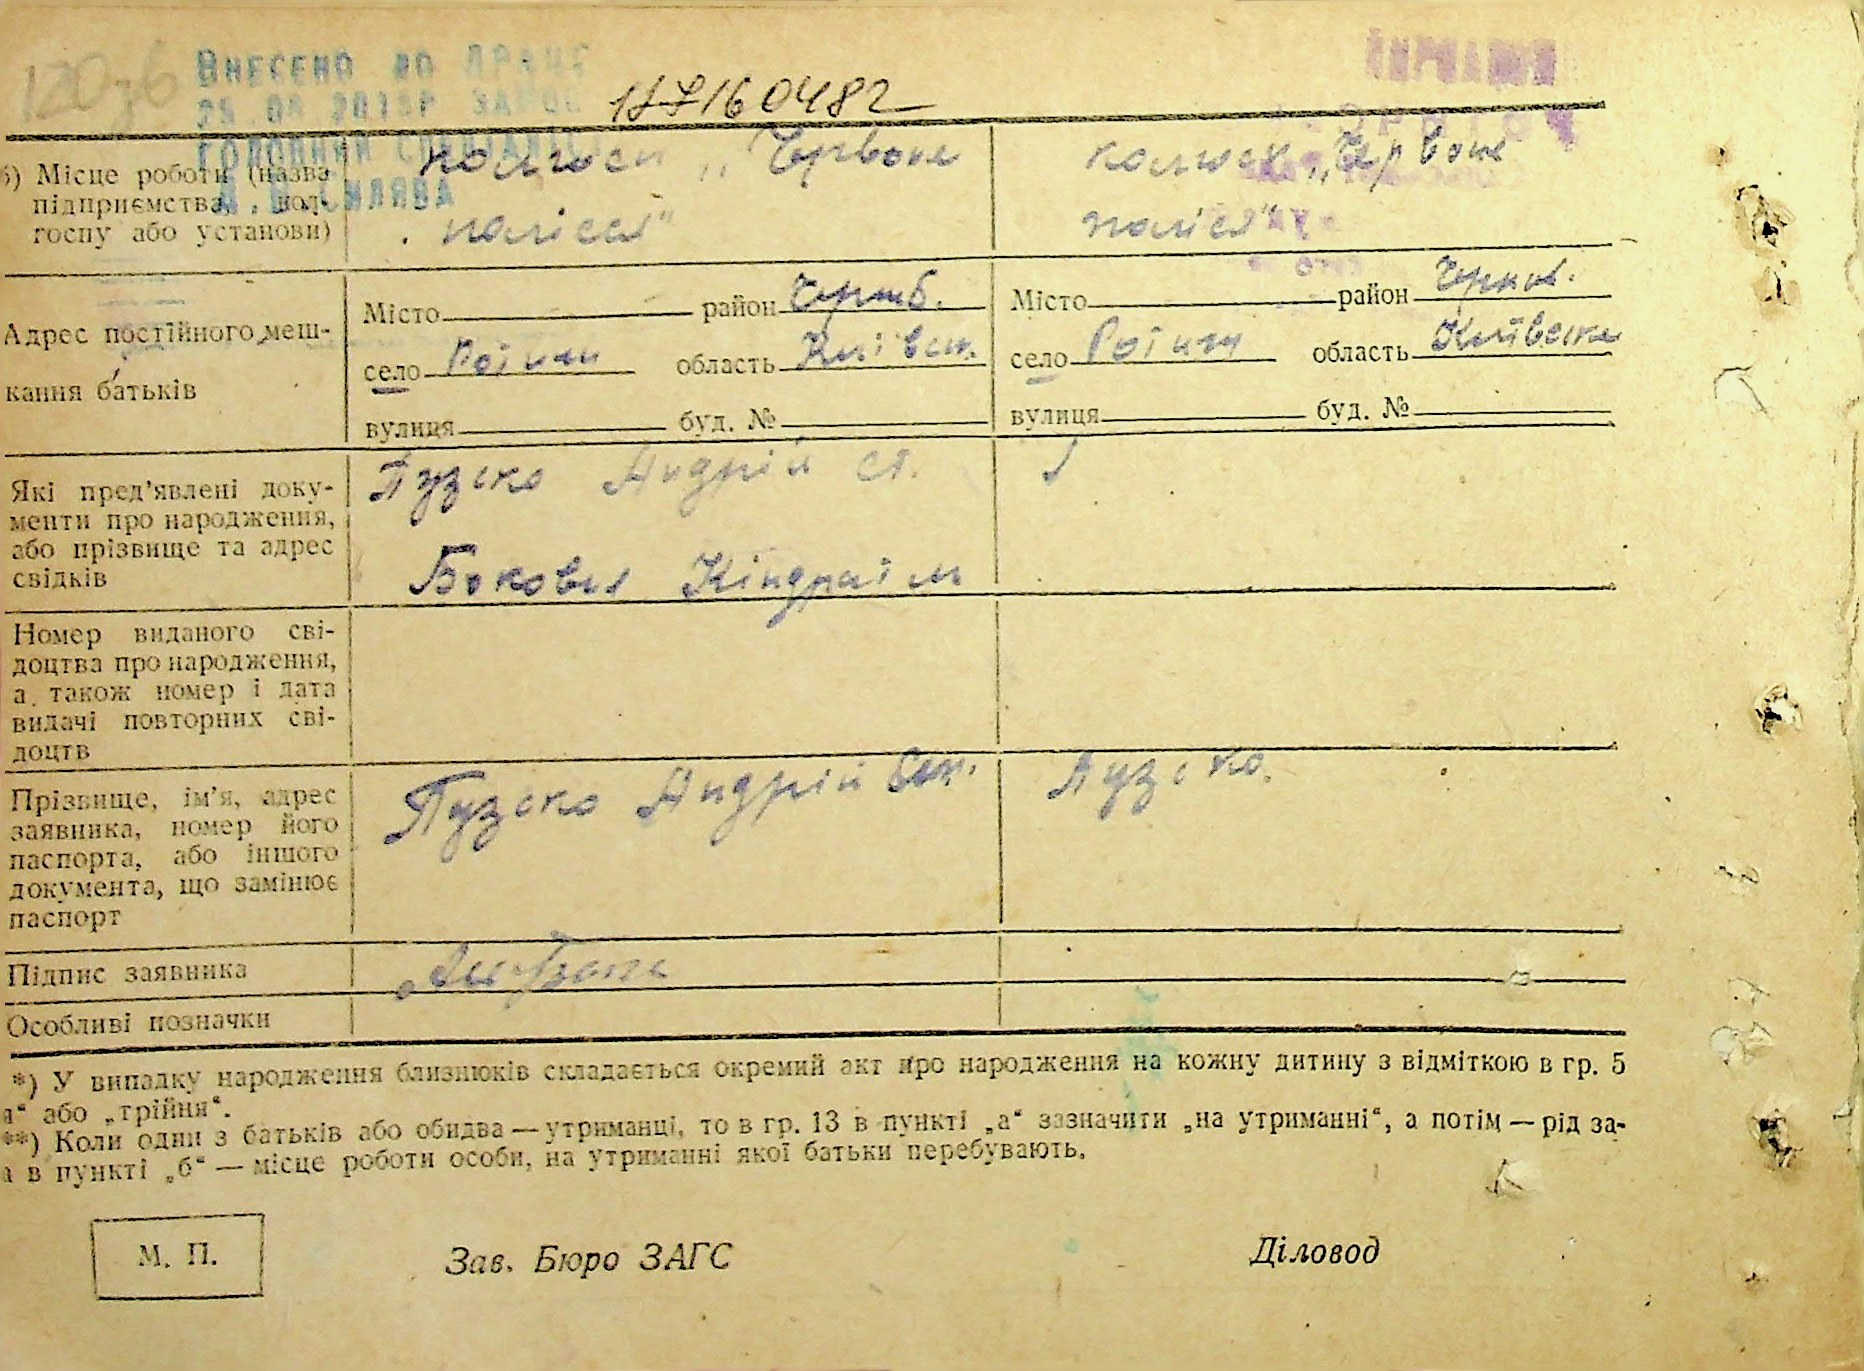 120зб
ВНЕСЕНО ДО ДРАЦС
29.08.2013Р
ГОЛОВНИЙ СПЕЦІАЛІСТ
СИЛЯВА
1716 0482
б) Місце роботи (назва підприємства, кол-
госпу або установи)
колгосп „Червоне
полісся"
колгосп „Червоне
полісся"
Адрес постійного меш-
кання батьків
Місто район Чорноб.
село Роїжи область Київськ.
вулиця буд. №
Місто район Чорноб.
село Роїжи область Київська
вулиця буд. №
Які пред'явлені доку-
менти про народження,
або прізвище та адрес
свідків
Пузско Андрій Ст.
Бокова
Номер виданого сві-
доцтва про народження,
а також номер і дата
видачі повторних сві-
доцтв
Прізвище, ім'я, адрес
заявника, номер його
паспорта, або іншого
документа, що замінює
паспорт
Пузско Андрій
Пузско.
Підпис заявника
Особливі позначки
*) У випадку народження близнюків складається окремий акт про народження на кожну дитину з відміткою в гр. 5
а“ або „трійня“.
**) Коли один з батьків або обидва — утриманці, то в гр. 13 в пункті „а“ зазначити „на утриманні“, а потім — рід за-
а в пункті „б“ — місце роботи особи, на утриманні якої батьки перебувають.
М. П.
Зав. Бюро ЗАГС
Діловод